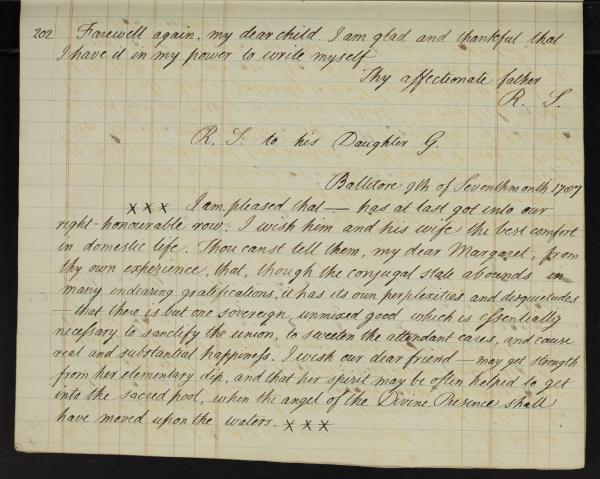 202 Farewell again, my dear child. I am glad and thankful that
I have it in my power to write myself
Thy affectionate father
R. S.
R. S. to his Daughter G.
Ballitore 9th of Seventhmonth 1787
x x x I am pleased that — has at last got into our
right-honourable row. I wish him and his wife the best comfort
in domestic life. Thou canst tell them, my dear Margaret, from
thy own experience, that, though the conjugal state abounds in
many endearing gratifications, it has its own perplexities and disquietudes
— that there is but one sovereign, unmixed good which is essentially
necessary to sanctify the union, to sweeten the attendant cares, and cause
real and substantial happiness. I wish our dear friend — may get strength
from her elementary dip, and that her spirit may be often helped to get
into the sacred pool, when the angel of the Divine Presence shall
have moved upon the waters. x x x